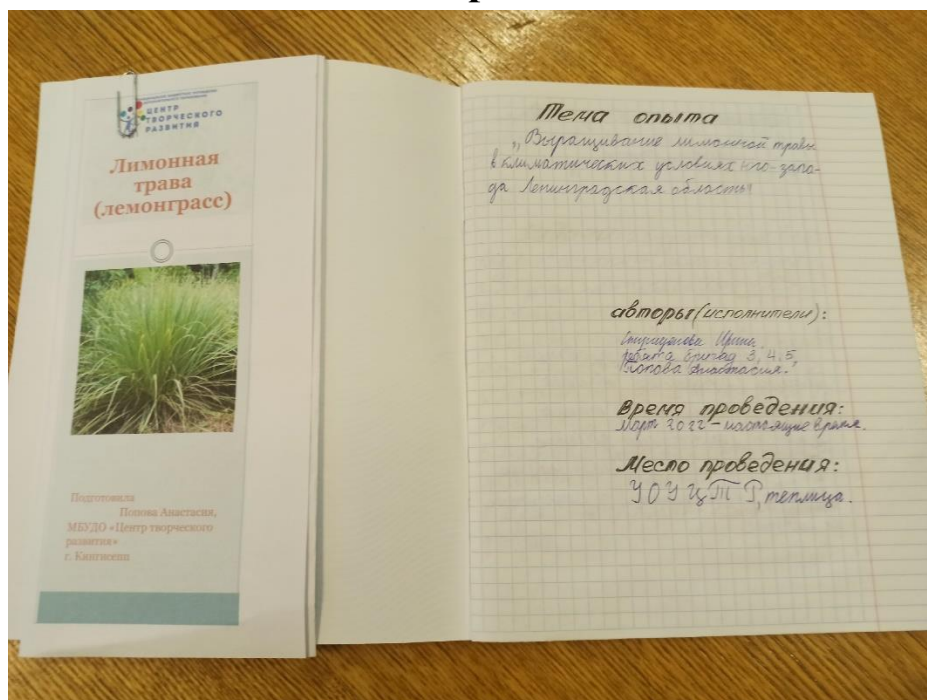 ЦЕНТР
ТВОРЧЕСКОГО
РАЗВИТИЯ
Лимонная
трава
(лемонграсс)
Подготовила
Попова Анастасия,
МБУДО «Центр творческого
развития»
г. Кингисепп
Тема опыта
„Выращивание лимонной травы
в климатических условиях юго-запа-
да Ленинградская область"
авторы (исполнители):
Ирина,
ребята бригад 3, 4, 5,
Попова Анастасия.
Время проведения:
Март 2022 – настоящее время.
Место проведения:
УОУ ЦТР, теплица.